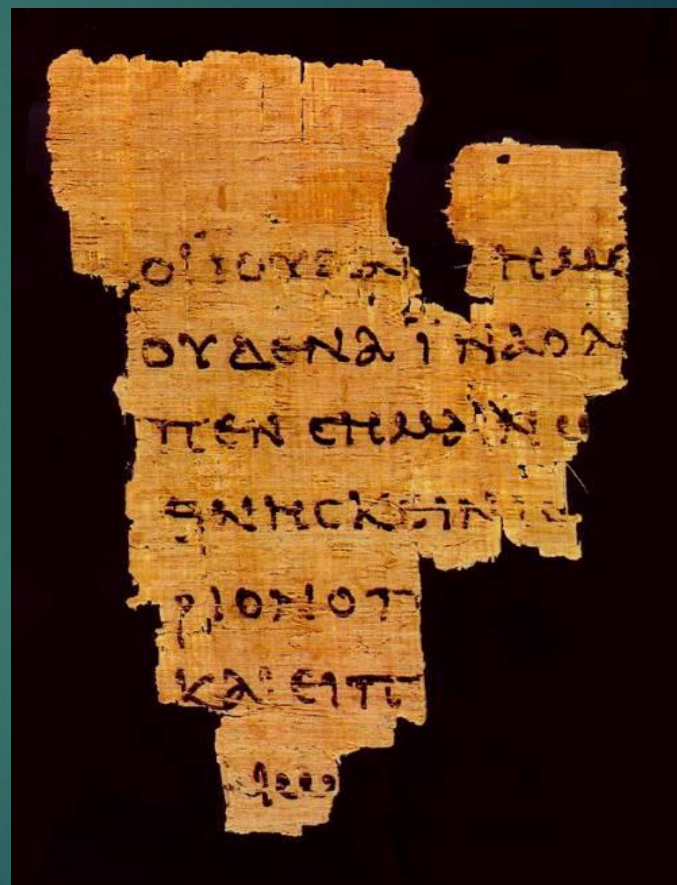 ΟΙΪΟΥΔΑΙ ΗΜΕ
ΟΥΔΕΝΑΪΝΑΟΛ
ΠΕΝϹΗΜΑΙΝΩ
ΘΝΗϹΚΕΙΝΙϹ
ΡΙΟΝΟΠ
ΚΑΙΕΙΠ
ΑΙΩ